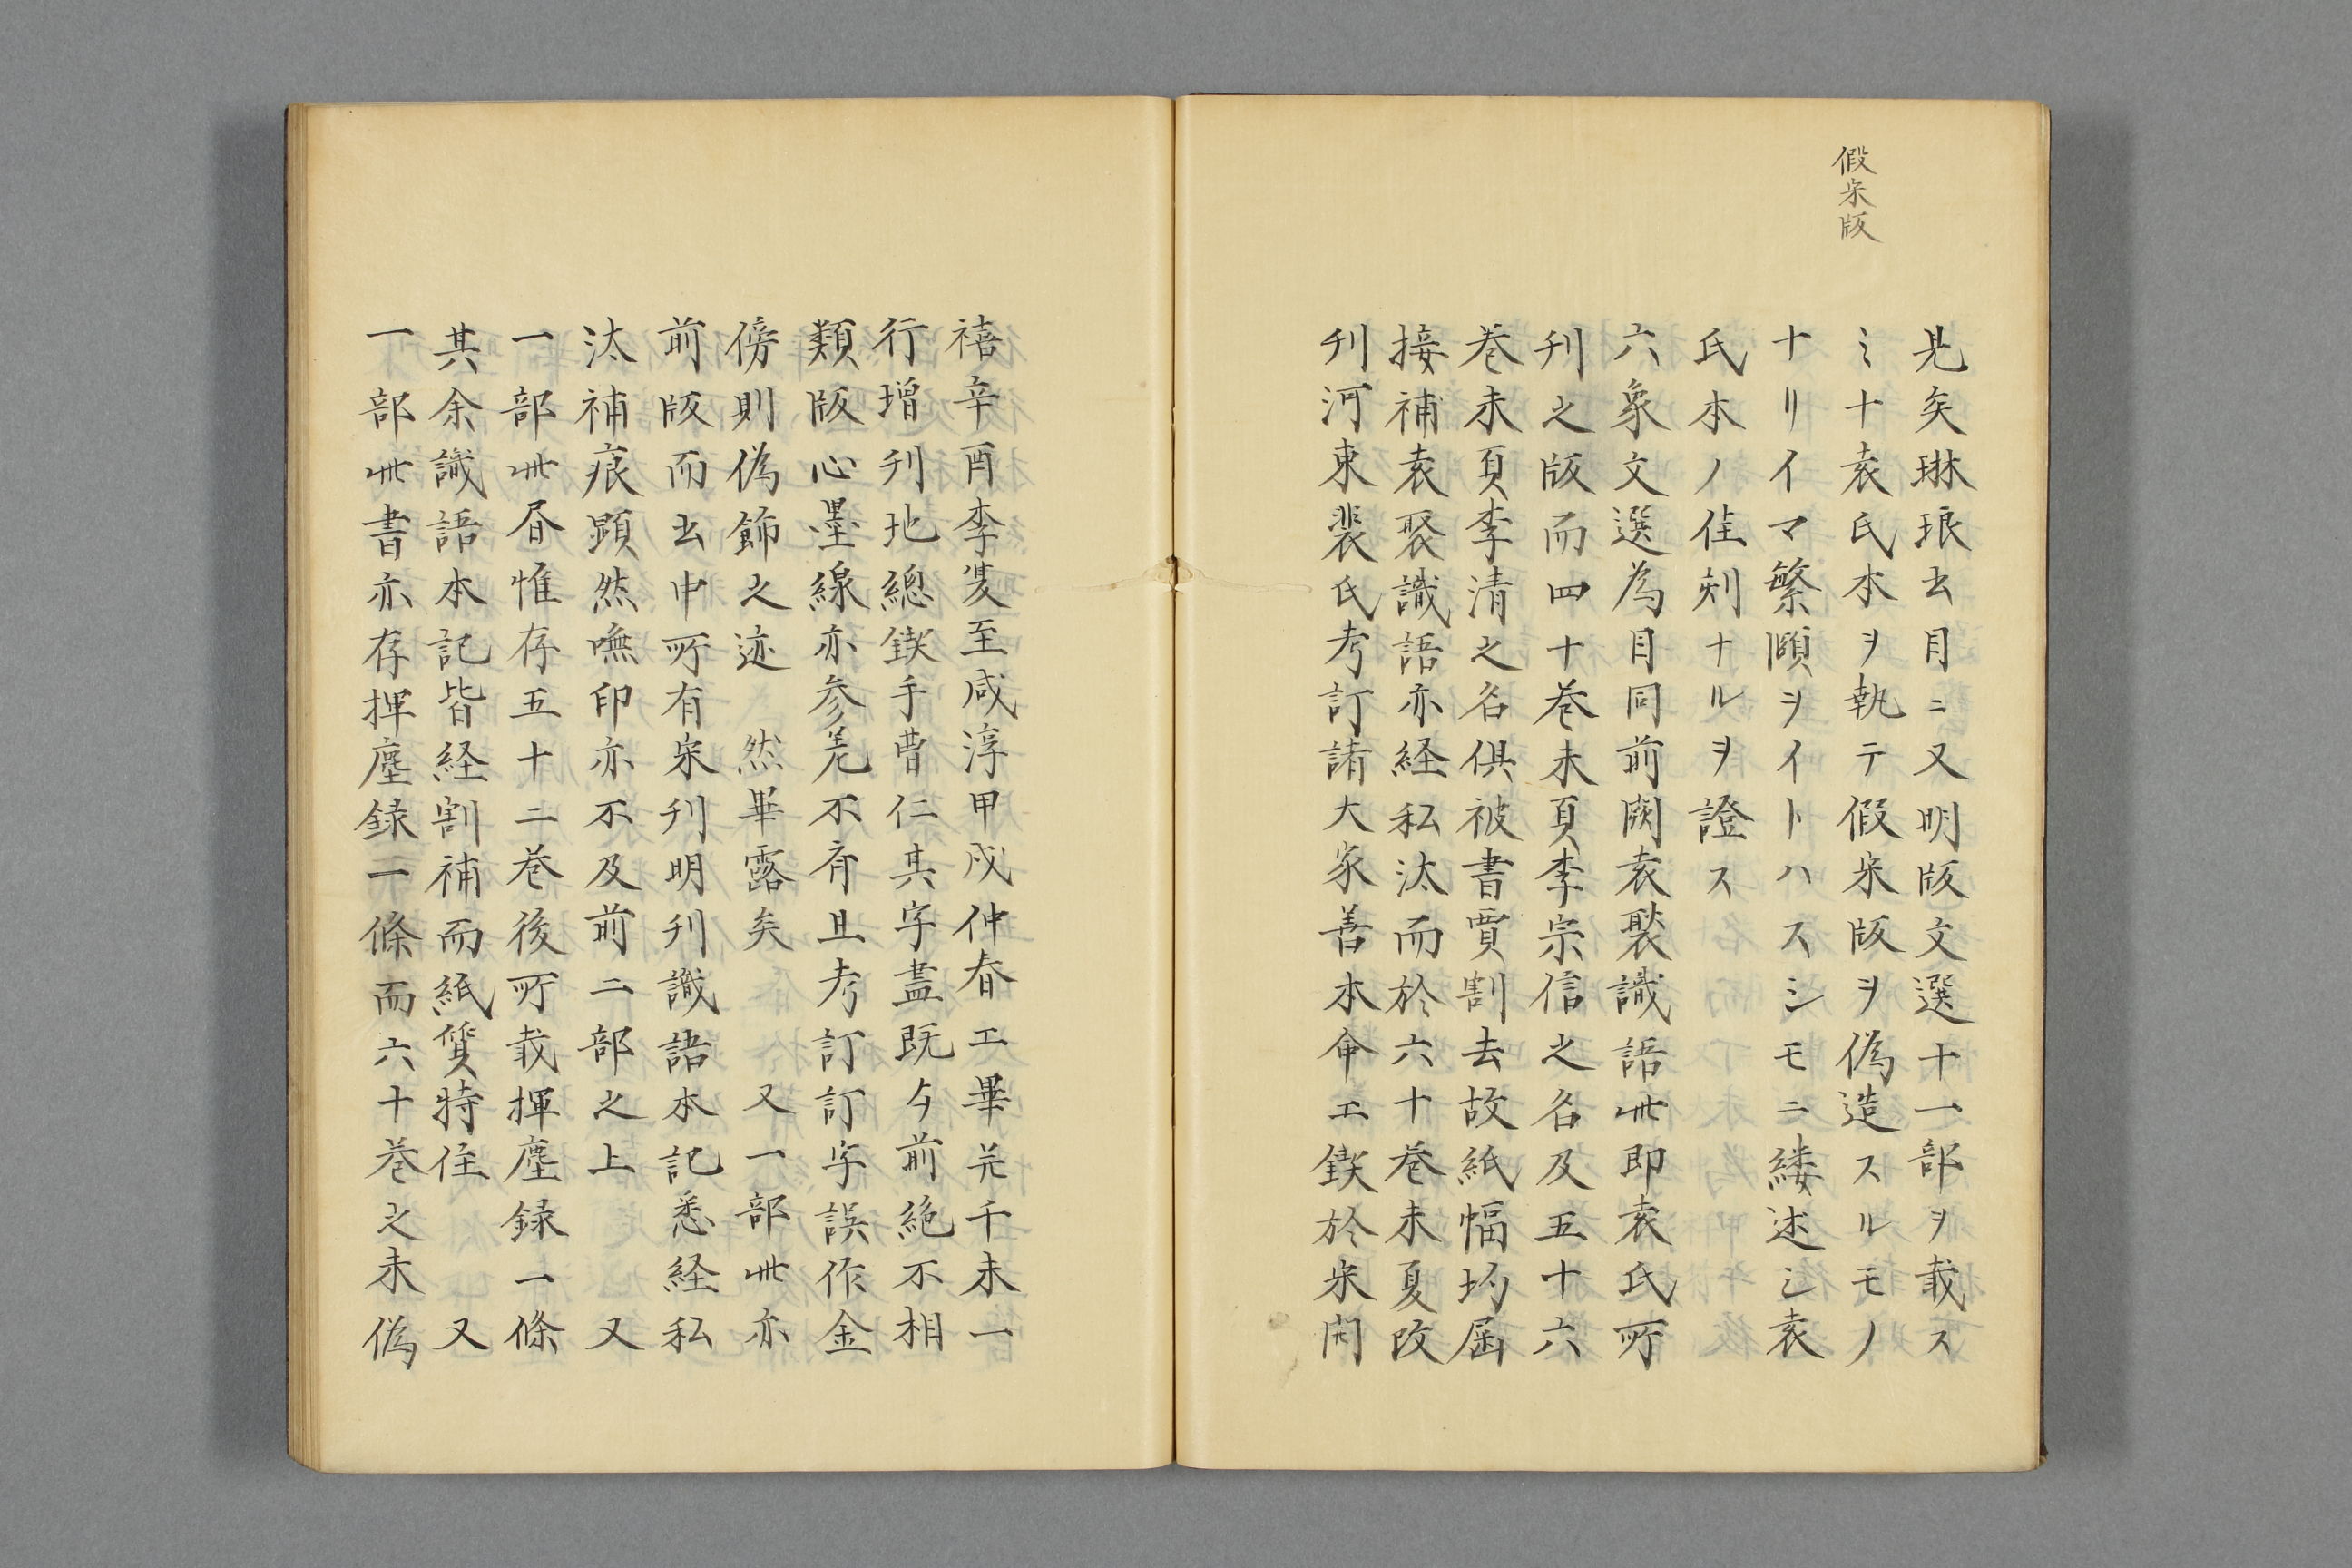 假宋版
見矣琳琅玄目ニ又明版文選十一部ヲ載ス
ミナ袁氏本ヲ執テ假宋版ヲ偽造スルモノ
ナリイマ繁順ヲイトハスシモニ縷述シ袁
氏本ノ佳刻ナルヲ證ス
六家文選為目同前闕袁褧識語此即袁氏所
刋之版而四十巻末頁李宗信之名及五十六
巻末頁李清之名俱被書賈割去故紙幅均屈
接補袁褧識語亦経私汰而於六十巻末夏改
刋河東裴氏考訂諸大家善本命工鍥於宋開
禧辛酉季夏至咸淳甲戌仲春工畢竞千未一
行增刋地總鍥手曹仁其字畫既与前絶不相
類版心墨線亦参差不斉且考訂訂字誤作金
傍則偽飾之迹 然畢露矣 又一部此亦
前版而玄中所有宋刋明刋識語本記悉経私
汰補痕顕然嘸印亦不及前二部之上 又
一部此昏惟存五十二巻後所載揮塵録一條
其余識語本記皆経割補而紙質特佳 又
一部此書亦存揮塵録一條而六十巻之末偽